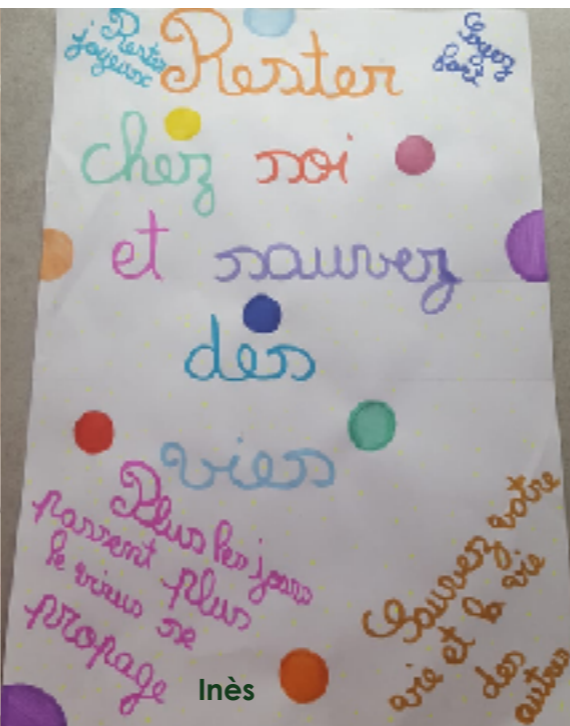 Rester
joyeux
Rester
Soyez
fort
chez soi
et sauvez
des
vies
Plus les jours
passent plus
le virus se
propage
Sauvez votre
vie et la vie
des
autres
Inès